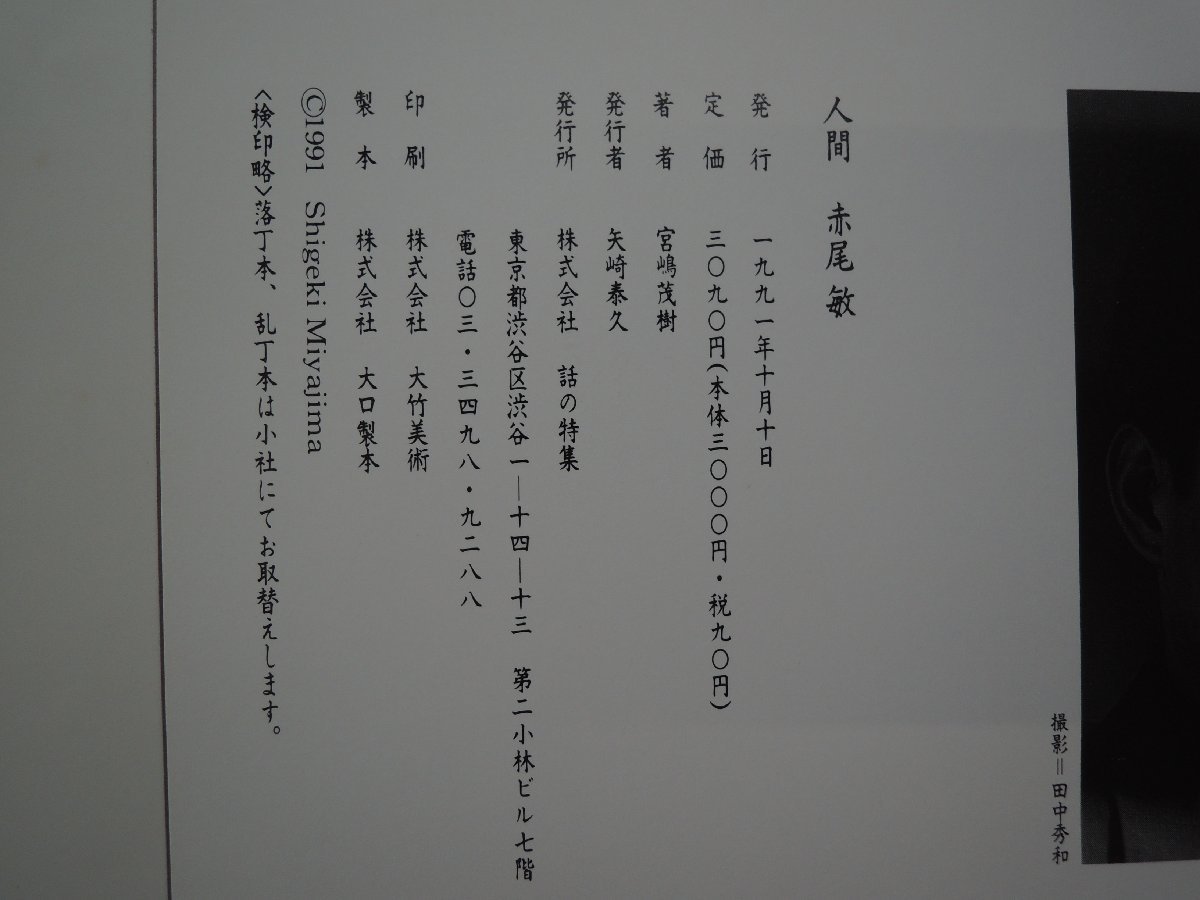 撮影＝田中秀和
人間　赤尾敏
発　行　一九九一年十月十日
定　価　三〇九〇円(本体三〇〇〇円・税九〇円)
著　者　宮嶋茂樹
発行者　矢崎泰久
発行所　株式会社　話の特集
東京都渋谷区渋谷一―十四―十三　第二小林ビル七階
電話〇三・三四九八・九二八八
印　刷　株式会社　大竹美術
製　本　株式会社　大口製本
©1991　Shigeki Miyajima
〈検印略〉落丁本、乱丁本は小社にてお取替えします。